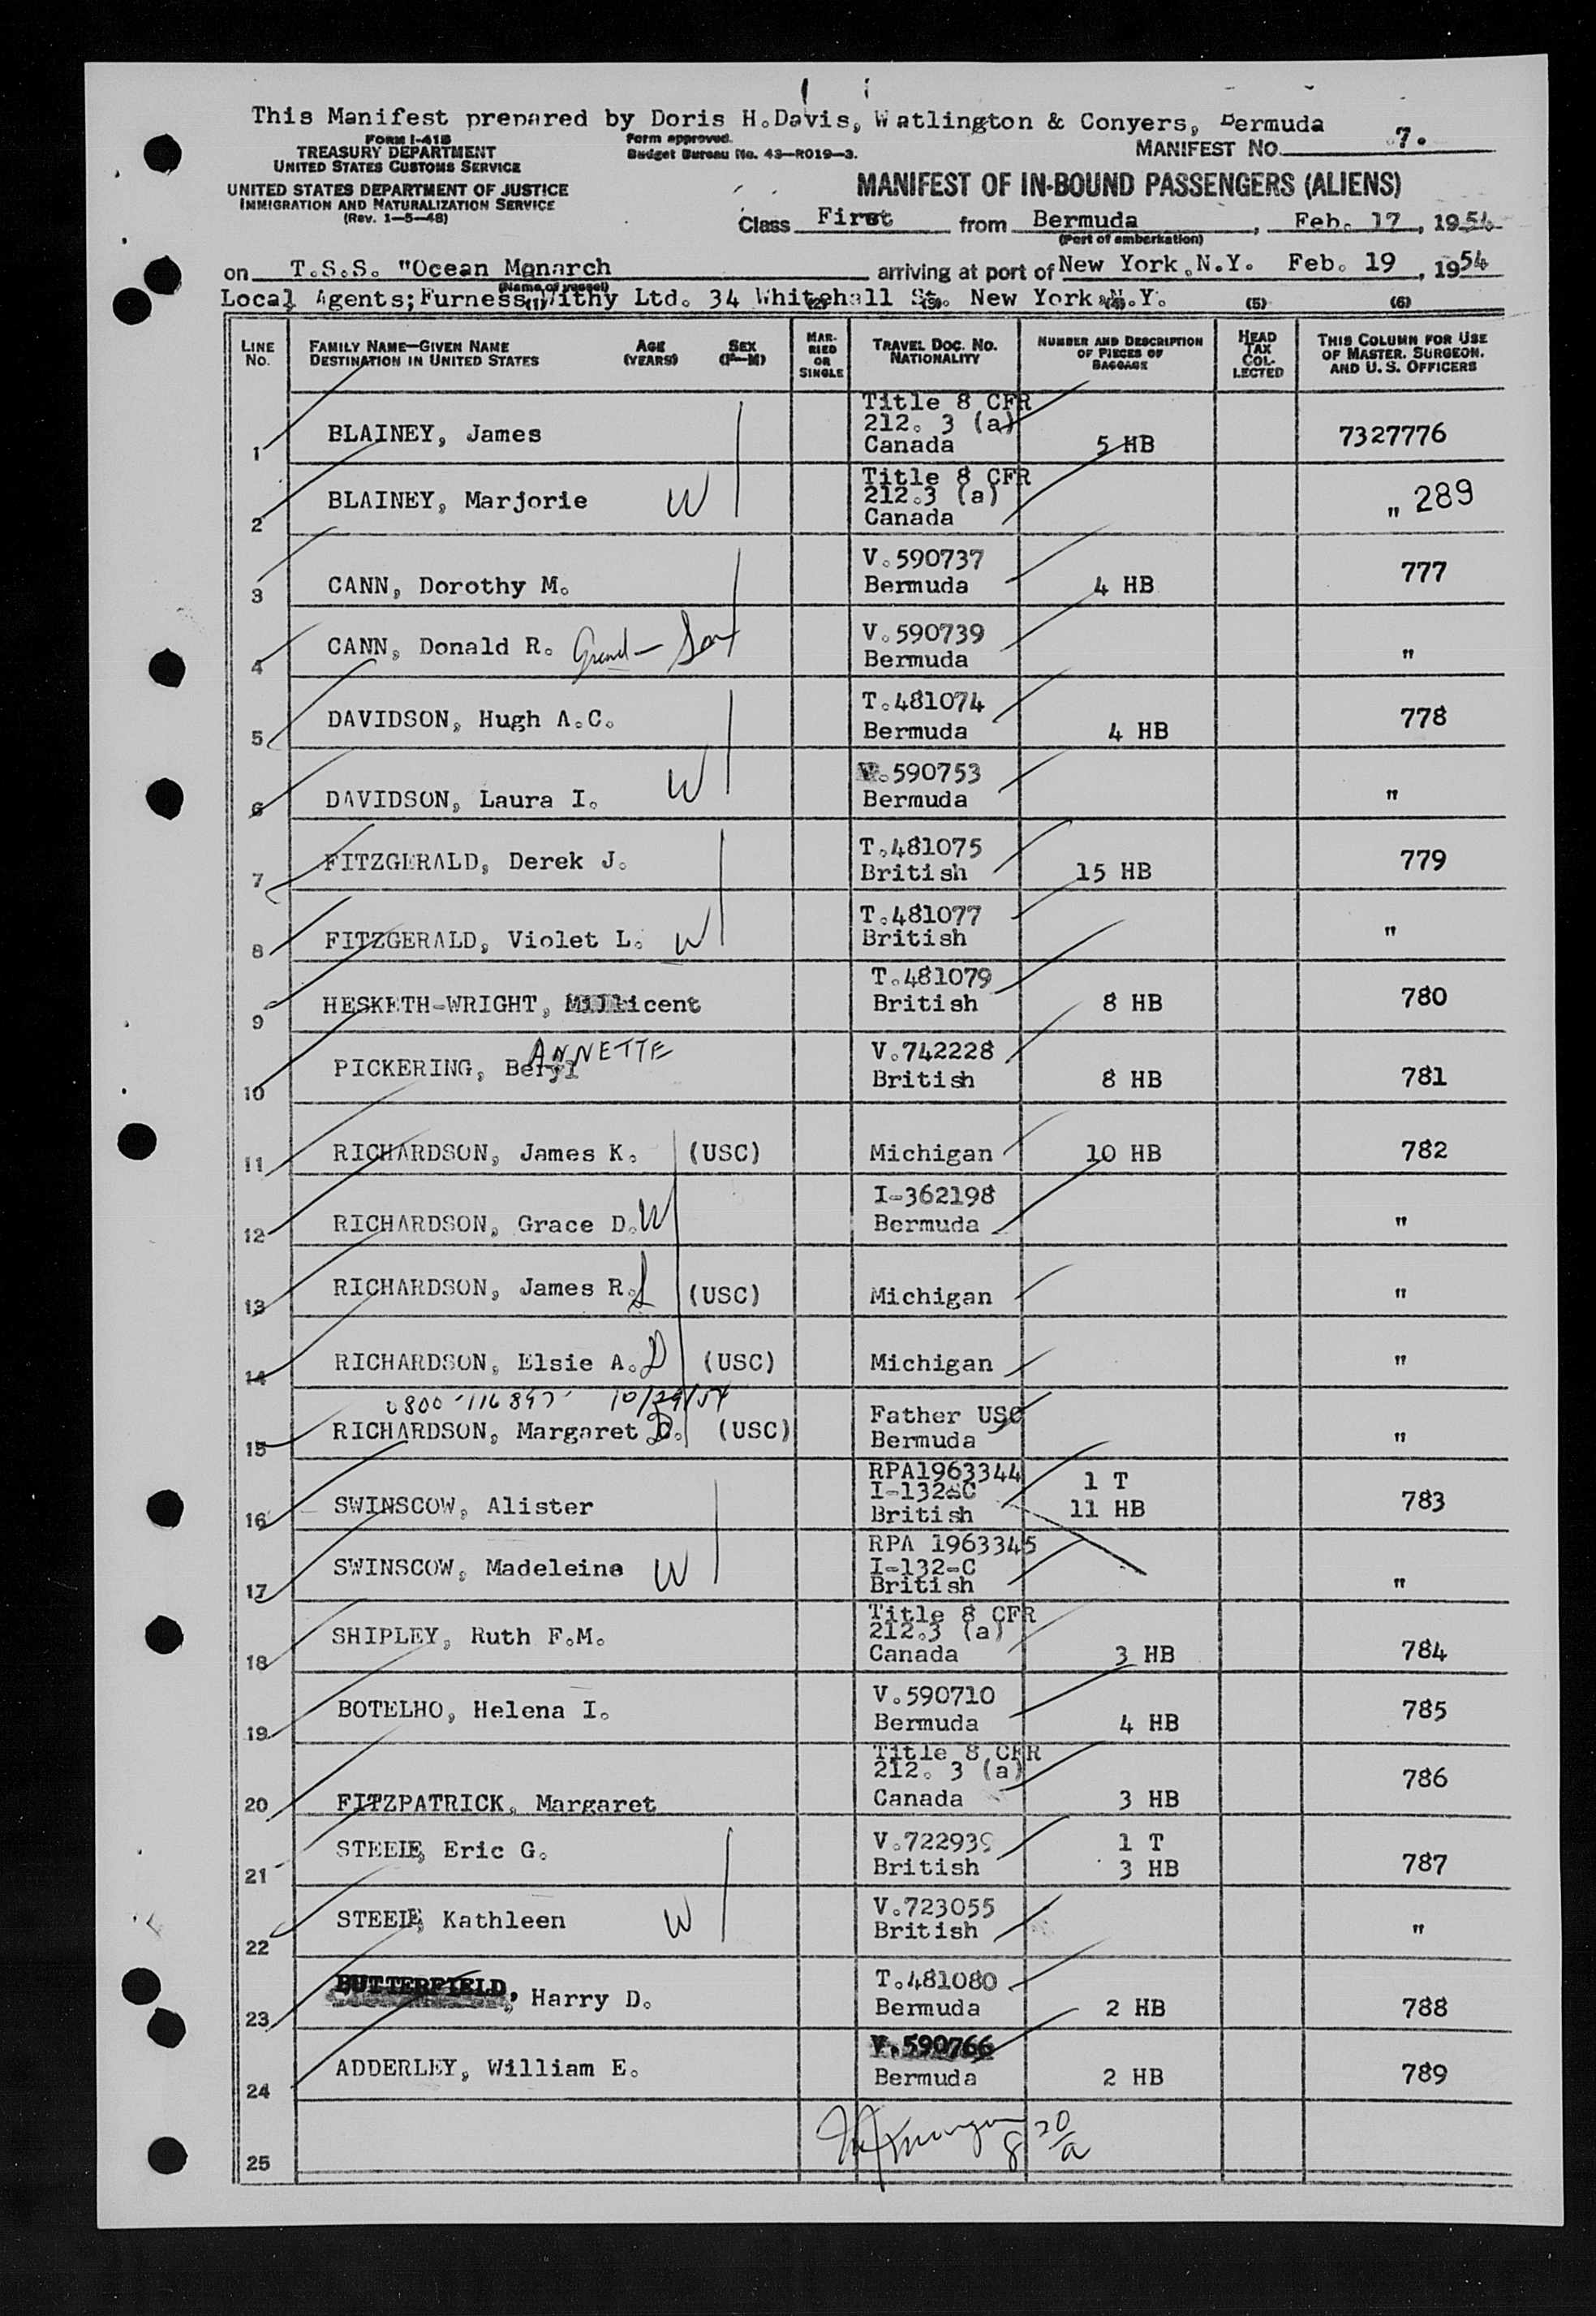 This Manifest prepared by Doris H.Davis, Watlington & Conyers, Bermuda
FORM I-418
TREASURY DEPARTMENT
UNITED STATES CUSTOMS SERVICE
Form approved.
Budget Bureau No. 43—R019—3.
MANIFEST NO. 7.
UNITED STATES DEPARTMENT OF JUSTICE
IMMIGRATION AND NATURALIZATION SERVICE
(Rev. 1—5—48)
MANIFEST OF IN-BOUND PASSENGERS (ALIENS)
Class First from Bermuda, Feb. 17, 1954
(Port of embarkation)
on T.S.S. "Ocean Monarch arriving at port of New York,N.Y. Feb. 19, 1954
(Name of vessel)
Local Agents;Furness Withy Ltd. 34 Whitehall St. New York N.Y.
(1) (2) (3) (4) (5) (6)
LINE No. FAMILY NAME—GIVEN NAME DESTINATION IN UNITED STATES AGE (YEARS) SEX (F—M) MARRIED OR SINGLE TRAVEL DOC. NO. NATIONALITY NUMBER AND DESCRIPTION OF PIECES OF BAGGAGE HEAD TAX COLLECTED THIS COLUMN FOR USE OF MASTER, SURGEON, AND U. S. OFFICERS
1 BLAINEY, James Title 8 CFR 212. 3 (a) Canada 5 HB 7327776
2 BLAINEY, Marjorie W Title 8 CFR 212.3 (a) Canada " 289
3 CANN, Dorothy M. V.590737 Bermuda 4 HB 777
4 CANN, Donald R. Grand-Son V.590739 Bermuda "
5 DAVIDSON, Hugh A.C. T.481074 Bermuda 4 HB 778
6 DAVIDSON, Laura I. W V.590753 Bermuda "
7 FITZGERALD, Derek J. T.481075 British 15 HB 779
8 FITZGERALD, Violet L. W T.481077 British "
9 HESKETH-WRIGHT, Millicent T.481079 British 8 HB 780
10 PICKERING, Beryl ANNETTE V.742228 British 8 HB 781
11 RICHARDSON, James K. (USC) Michigan 10 HB 782
12 RICHARDSON, Grace D. W I-362198 Bermuda "
13 RICHARDSON, James R. S (USC) Michigan "
14 RICHARDSON, Elsie A. D (USC) Michigan "
0800-116897 10/29/54
15 RICHARDSON, Margaret D. (USC) Father USC Bermuda "
16 SWINSCOW, Alister RPA1963344 I-132-C British 1 T 11 HB 783
17 SWINSCOW, Madeleine W RPA 1963345 I-132-C British "
18 SHIPLEY, Ruth F.M. Title 8 CFR 212.3 (a) Canada 3 HB 784
19 BOTELHO, Helena I. V.590710 Bermuda 4 HB 785
20 FITZPATRICK, Margaret Title 8 CFR 212. 3 (a) Canada 3 HB 786
21 STEELE, Eric G. V.722939 British 1 T 3 HB 787
22 STEELE, Kathleen W V.723055 British "
23 BUTTERFIELD, Harry D. T.481080 Bermuda 2 HB 788
24 ADDERLEY, William E. V.590766 Bermuda 2 HB 789
25